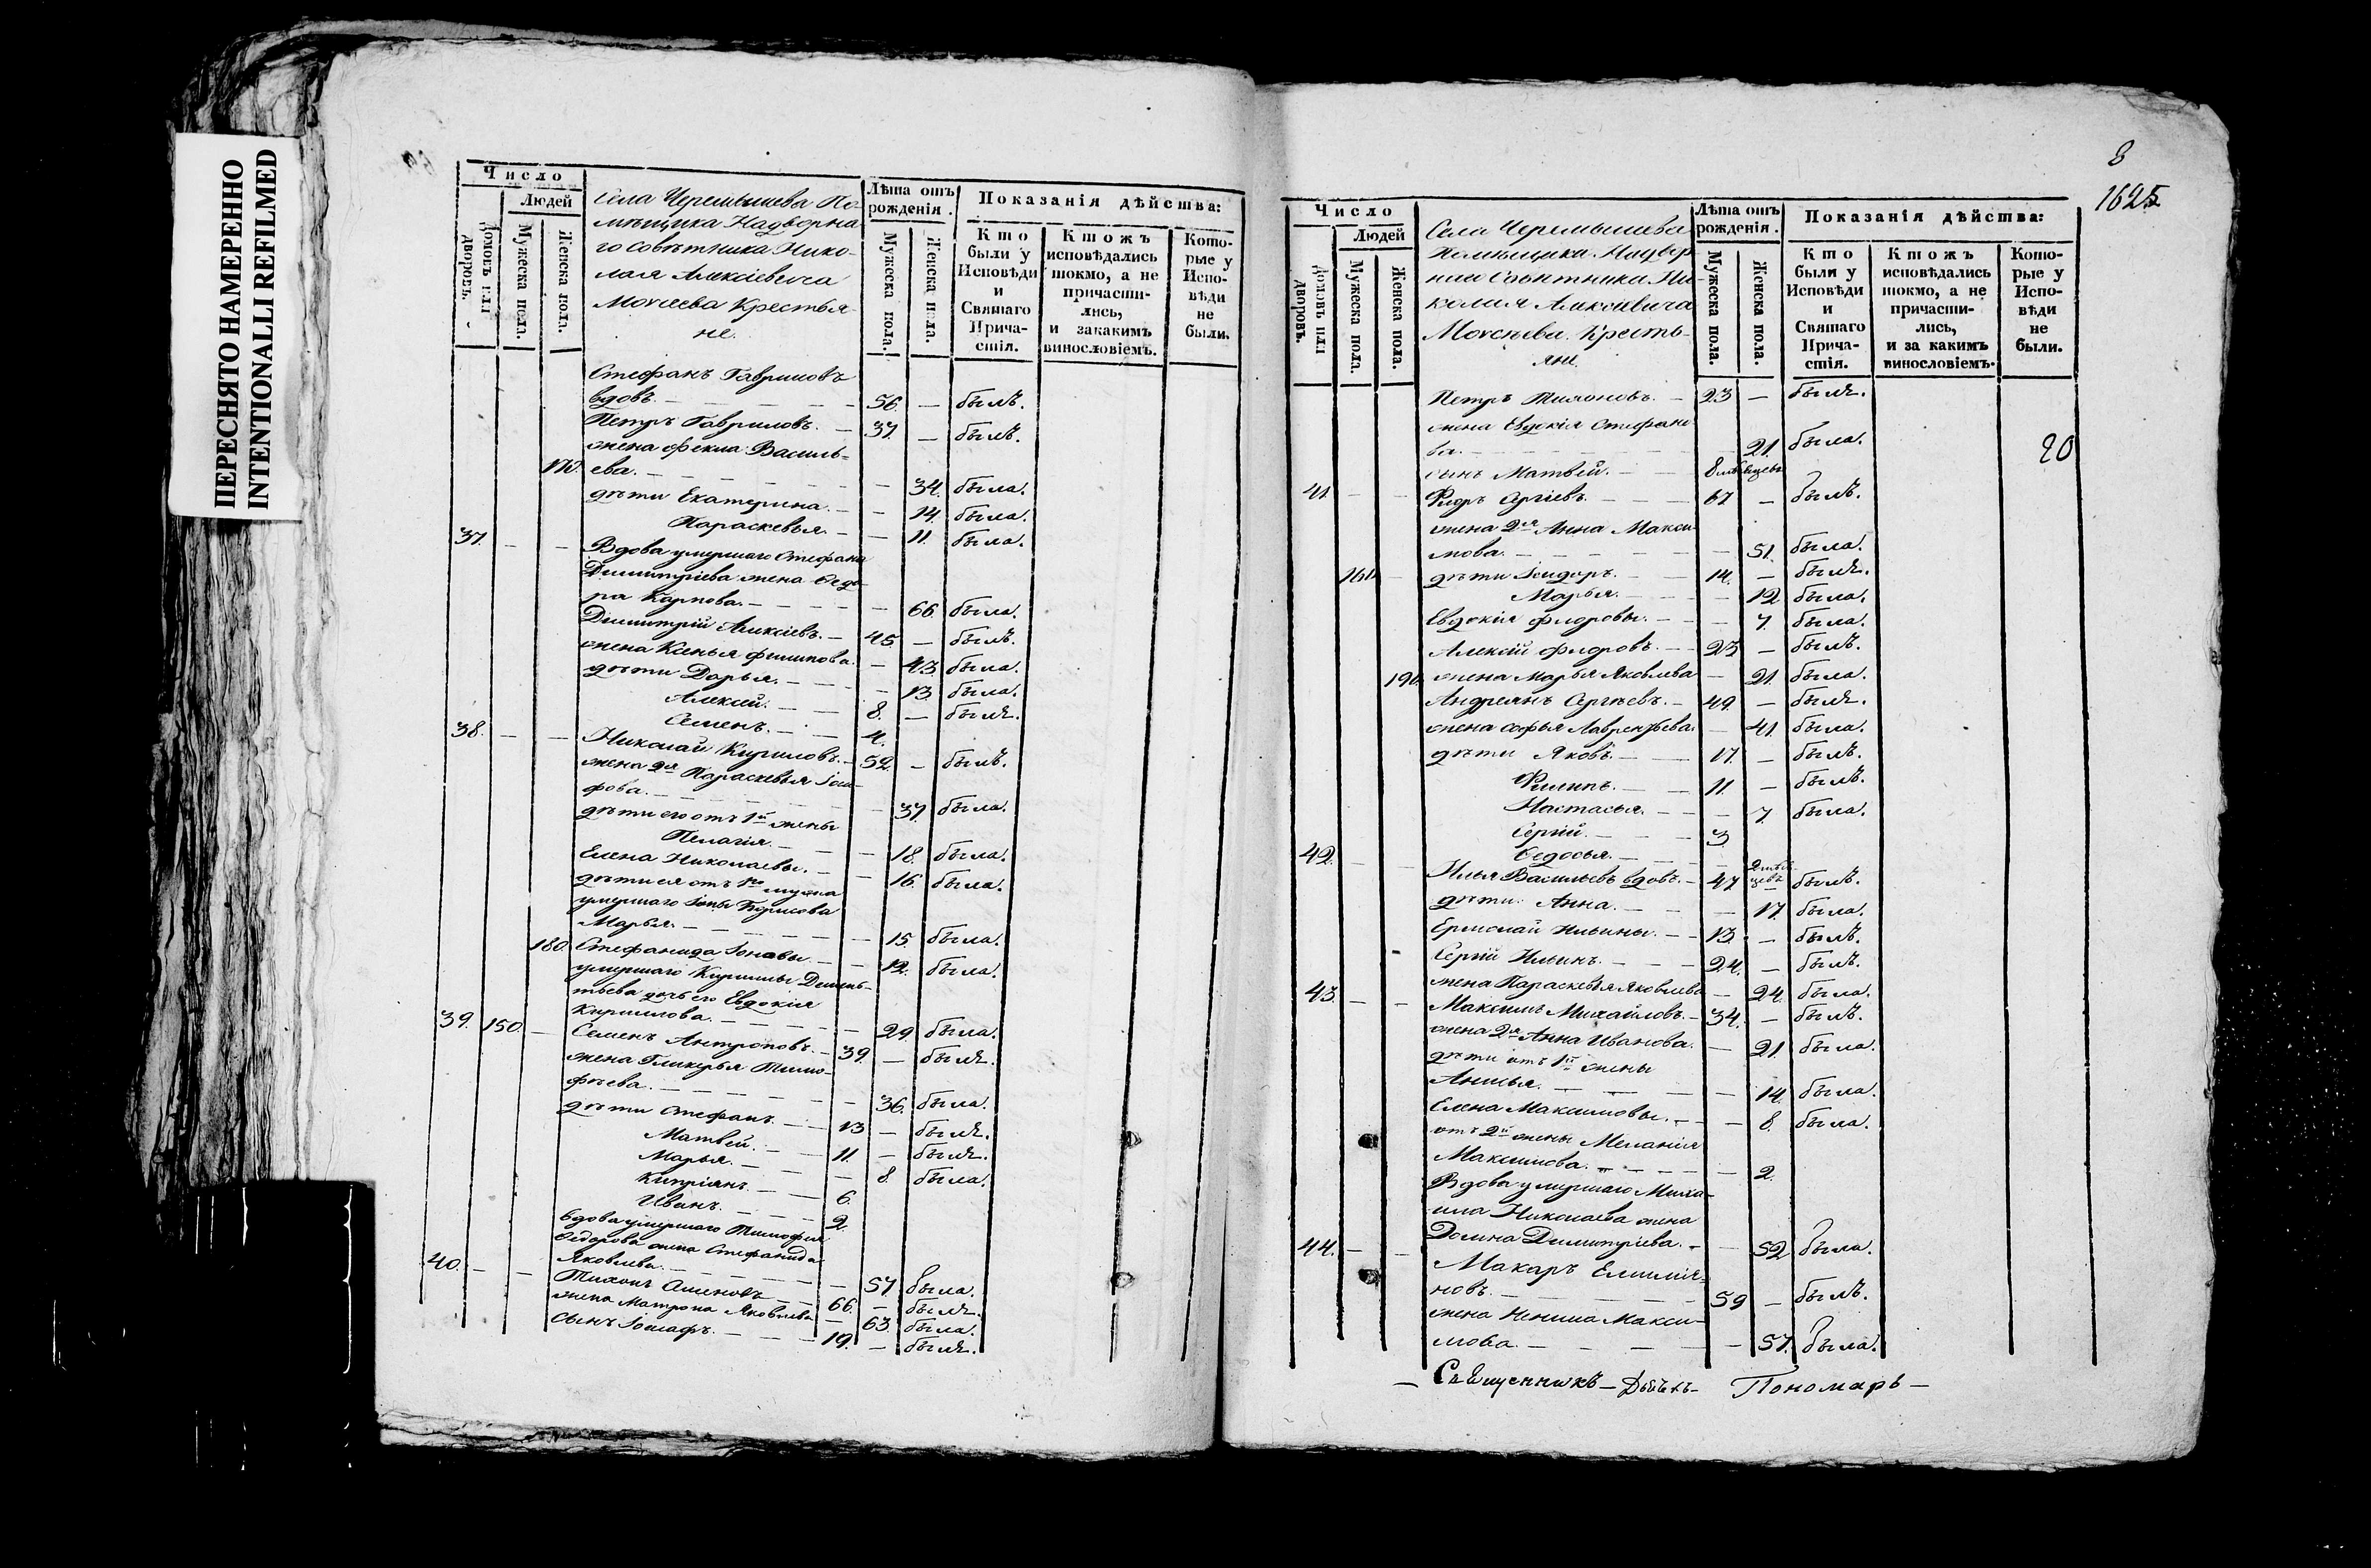 ПЕРЕСНЯТО НАМЕРЕННО
INTENTIONALLI REFILMED
Число
Домовъ или дворовъ.
Людей
Мужеска пола.
Женска пола.
Села Черемышева По-
мѣщика Надворна
го Совѣтника Нико-
лая Алексіевича
Крестья
не.
Лѣта отъ рожденія.
Мужеска пола.
Женска пола.
Показанія дѣйства:
Кто были у Исповѣди и Святаго Причастія.
Ктожъ исповѣдались токмо, а не причастились, и закакимъ винословіемъ.
Которые у Исповѣди не были.
Стефанъ Гавриловъ
вдовъ. — 56. — былъ.
Петръ Гавриловъ. — 37. — былъ.
жена Фекла Василь-
170. ева. — 34. была.
дѣти Екатерина. — 14. была.
Параскевья. — 11. была.
37. — — Вдова умершаго Стефана
Димитріева жена Ѳедо-
ра Карпова. — 66. была.
Димитрій Алексіевъ. — 45. — былъ.
жена Ксенья Филипова. — 43. была.
дѣти Дарья. — 13. была.
Алексій. — 8. — былъ.
Семенъ. — 4.
38. — — Николай Кириловъ. — 52. — былъ.
жена 2я Параскевья
фова. — 37. была.
дѣти его отъ 1й жены
Пелагія. — 18. была.
Елена Николаевы. — 16. была.
дѣти ея отъ 1го мужа
умершаго Іоны Борисова
Марья. — 15. была.
180. Стефанида Іонавы. — 12. была.
умершаго Кирилы Демень-
тьева дочь его Евдокія
Кирилова. — 29. была.
39. 150. — Семенъ Антроповъ. — 39. — былъ.
жена Гликерья Тимо-
фѣева. — 36. была.
дѣти Стефанъ. — 13 — былъ.
Матвей. — 11. — былъ.
Марья. — 8. была.
Кипріянъ. — 6.
Иванъ. — 2.
вдова умершаго Тимофея
Ѳедорова жена Стефанида
Яковлева. — 57. была.
40. — — Тихонъ Семеновъ — 66. — былъ.
жена Матрона Яковлева — 63. была.
сынъ Іосафъ. — 19. — былъ.
8
1625
Число
Домовъ или дворовъ.
Людей
Мужеска пола.
Женска пола.
Села Черемышева
Помѣщика Надвор-
наго Совѣтника Ни-
колая Алексіевича
Кресть-
яне.
Лѣта отъ рожденія.
Мужеска пола.
Женска пола.
Показанія дѣйства:
Кто были у Исповѣди и Святаго Причастія.
Ктожъ исповѣдались токмо, а не причастились, и за какимъ винословіемъ.
Которые у Исповѣди не были.
Петръ Тихоновъ. — 23 — былъ.
жена Евдокія Стефано-
ва. — 21. была.
20
сынъ Матвей. — 8 мѣсяцевъ
41 — — Флоръ Сергіевъ. — 67 — былъ.
жена 2я Анна Макси-
мова. — 51. была.
160. — дѣти Ісидоръ. — 14. — былъ.
Марья. — 12 была.
Евдокія Флоровы. — 7. была.
Алексій Флоровъ. — 23 — былъ.
190. жена Марья Яковлева — 21. была.
Андреянъ Сергѣевъ. — 49. — былъ.
жена Софья Лаврентьева. — 41. была.
дѣти Яковъ. — 17. — былъ.
Филипъ. — 11. — былъ.
Настасья. — 7. была.
Сергій. — 3
Ѳедосья. — 2 мѣсяцевъ
42. — — Илья Васильевъ вдовъ. — 47 былъ.
дѣти Анна. — 17. была.
Ермолай Ильины. — 13. — былъ.
Сергій Ильинъ. — 24. — былъ.
жена Параскевья Яковлева — 24. была.
43. — — Максимъ Михайловъ. — 34. — былъ.
жена 2я Анна Иванова. — 21. была.
дѣти отъ 1й жены
Анисья. — 14. была.
Елена Максимовы. — 8. была.
отъ 2й жены Меланія
Максимова. — 2.
Вдова умершаго Миха-
ила Николаева жена
Домна Димитріева. — 52 была.
44. — — Макаръ Емилія-
новъ. — 59 — былъ.
жена Ненила Макси-
мова. — 57. была.
— Священникъ — Дьячекъ — Пономарь —